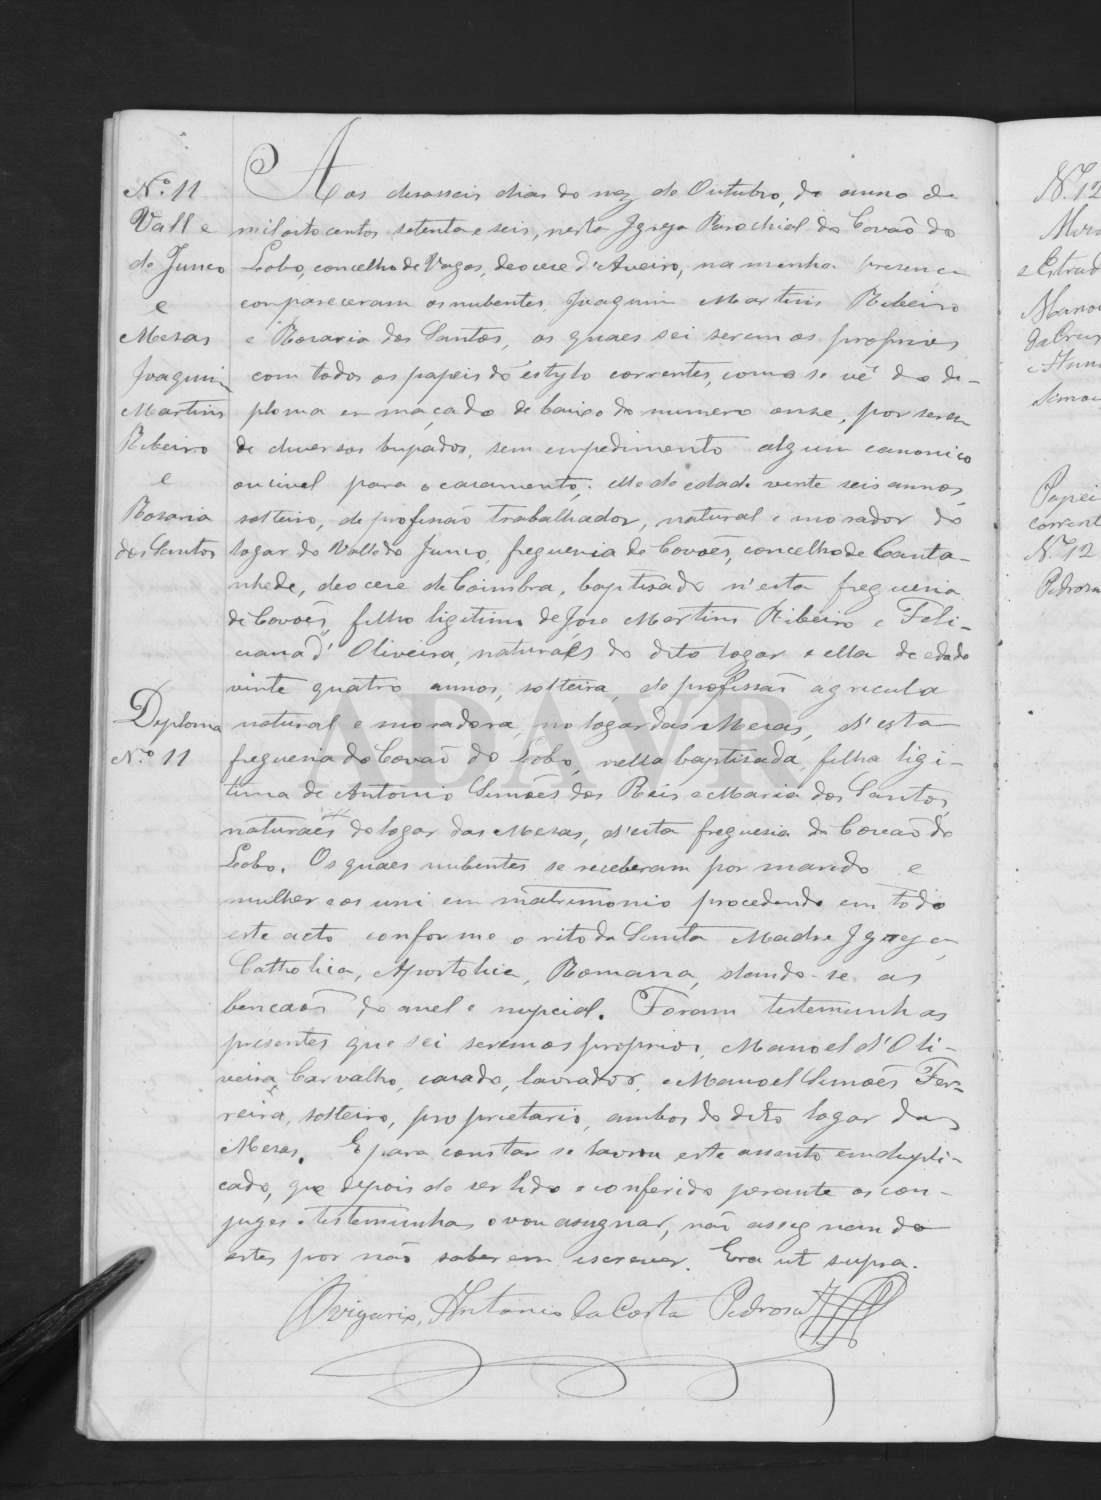 Nº 11
Valle
do Junco
e
Mesas
Joaquim
Martins
Ribeiro
e
Rosaria
dos Santos
Diploma
Nº 11
Aos desasseis dias do mez de Outubro, do anno de
mil oito centos setenta e seis, nesta Igreja Parochial do Covaõ do
Lobo, concelho de Vagos, deocese d'Aveiro, na minha presença
compareceram os nubentes Joaquim Martins Ribeiro
e Rosaria dos Santos, os quaes sei serem os proprios
com todos os papeis do estylo correntes, como se vê do de-
ploma en maçado de baixo do numero onze, por serem
de diversos bispados, sem empedimento algum canonico
ou civel para o casamento; elle de edade vinte seis annos,
solteiro, de profissaõ trabalhador, natural e morador do
logar do Valle do Junco, freguesia de Covoẽs, concelho de Canta-
nhede, deocese de Coimbra, baptisado n'esta freguesia
de Covoẽs, filho ligitimo de Jose Martins Ribeiro e Feli-
ciana d'Oliveira, naturaes do dito logar e ella de edade
vinte quatro annos, solteira, de profissaõ agricula
natural e moradora, no logar das Mesas, d'esta
freguesia do Covaõ do Lobo, nella baptisada, filha ligi-
tima de Antonio Simoẽs dos Reis e Maria dos Santos
naturaes do logar das Mesas, d'esta freguesia do Covaõ do
Lobo. Os quaes nubentes se receberam por marido e
mulher e os uni em matrimonio procedendo em todo
este acto conforme o rito da Santa Madre Igreja
Catholica, Apostolica, Romana, dando-se as
bencaõs do anel e nupcial. Foram testemunhas
presentes que sei serem os proprios, Manoel d'Oli-
veira Carvalho, casado, lavrador, e Manoel Simoẽs Fer-
reira, solteiro, proprietario, ambos do dito logar das
Mesas. E para constar se lavrou este assento em dupli-
cado, que depois de ser lido e conferido perante os con-
juges e testemunhas o vou assignar, naõ assegnando
estes por naõ saberem escrever. Era ut supra.
O vigario, Antonio da Costa Pedrosa
ADAVR
N. 12
e Estrad
Mano
da Cruz
Papei
corrent
N. 12
Pedrosa